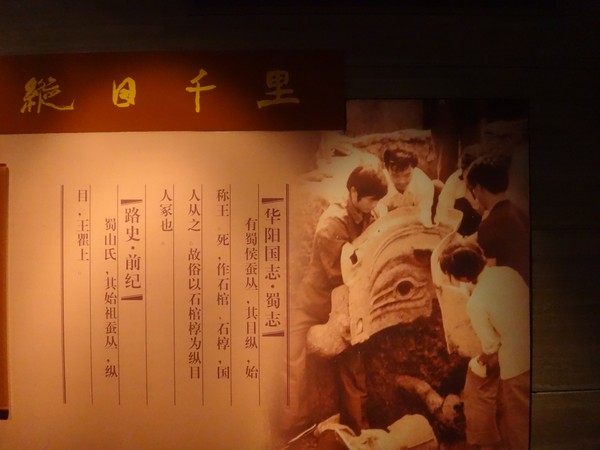 縱目千里
华阳国志·蜀志
有蜀侯蚕丛，其目纵，始
称王。死，作石棺、石椁，国
人从之。故俗以石棺椁为纵目
人冢也。
路史·前纪
蜀山氏，其始祖蚕丛，纵
目，王瞿上。